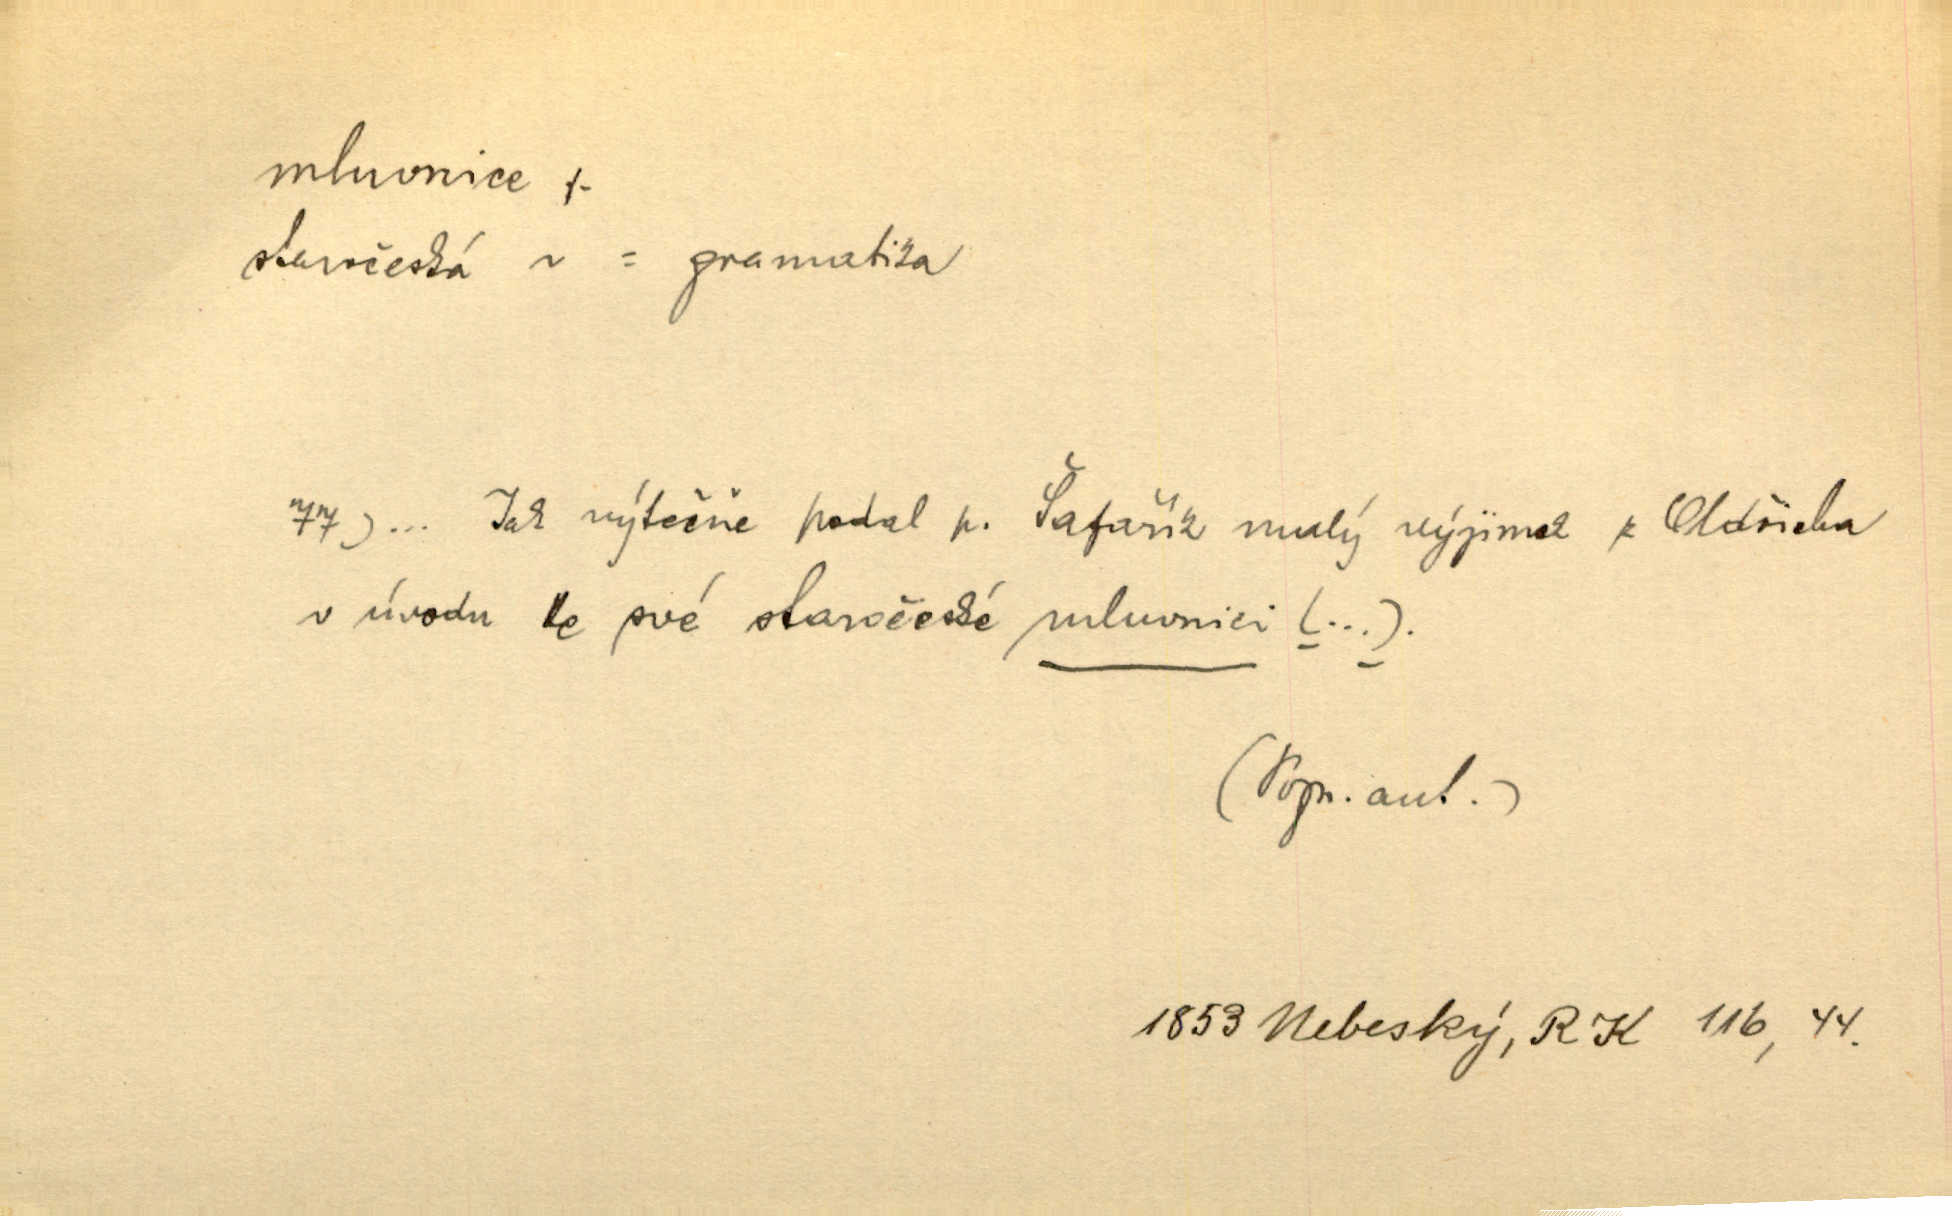 mluvnice f.
staročeská ~ = gramatika
77) ... Jak výtečně podal p. Šafařík malý výjimek z Oldřicha
v úvodu ke své staročeské mluvnici (...).
(Pozn. aut.)
1853 Nebeský, RK 116, 44.